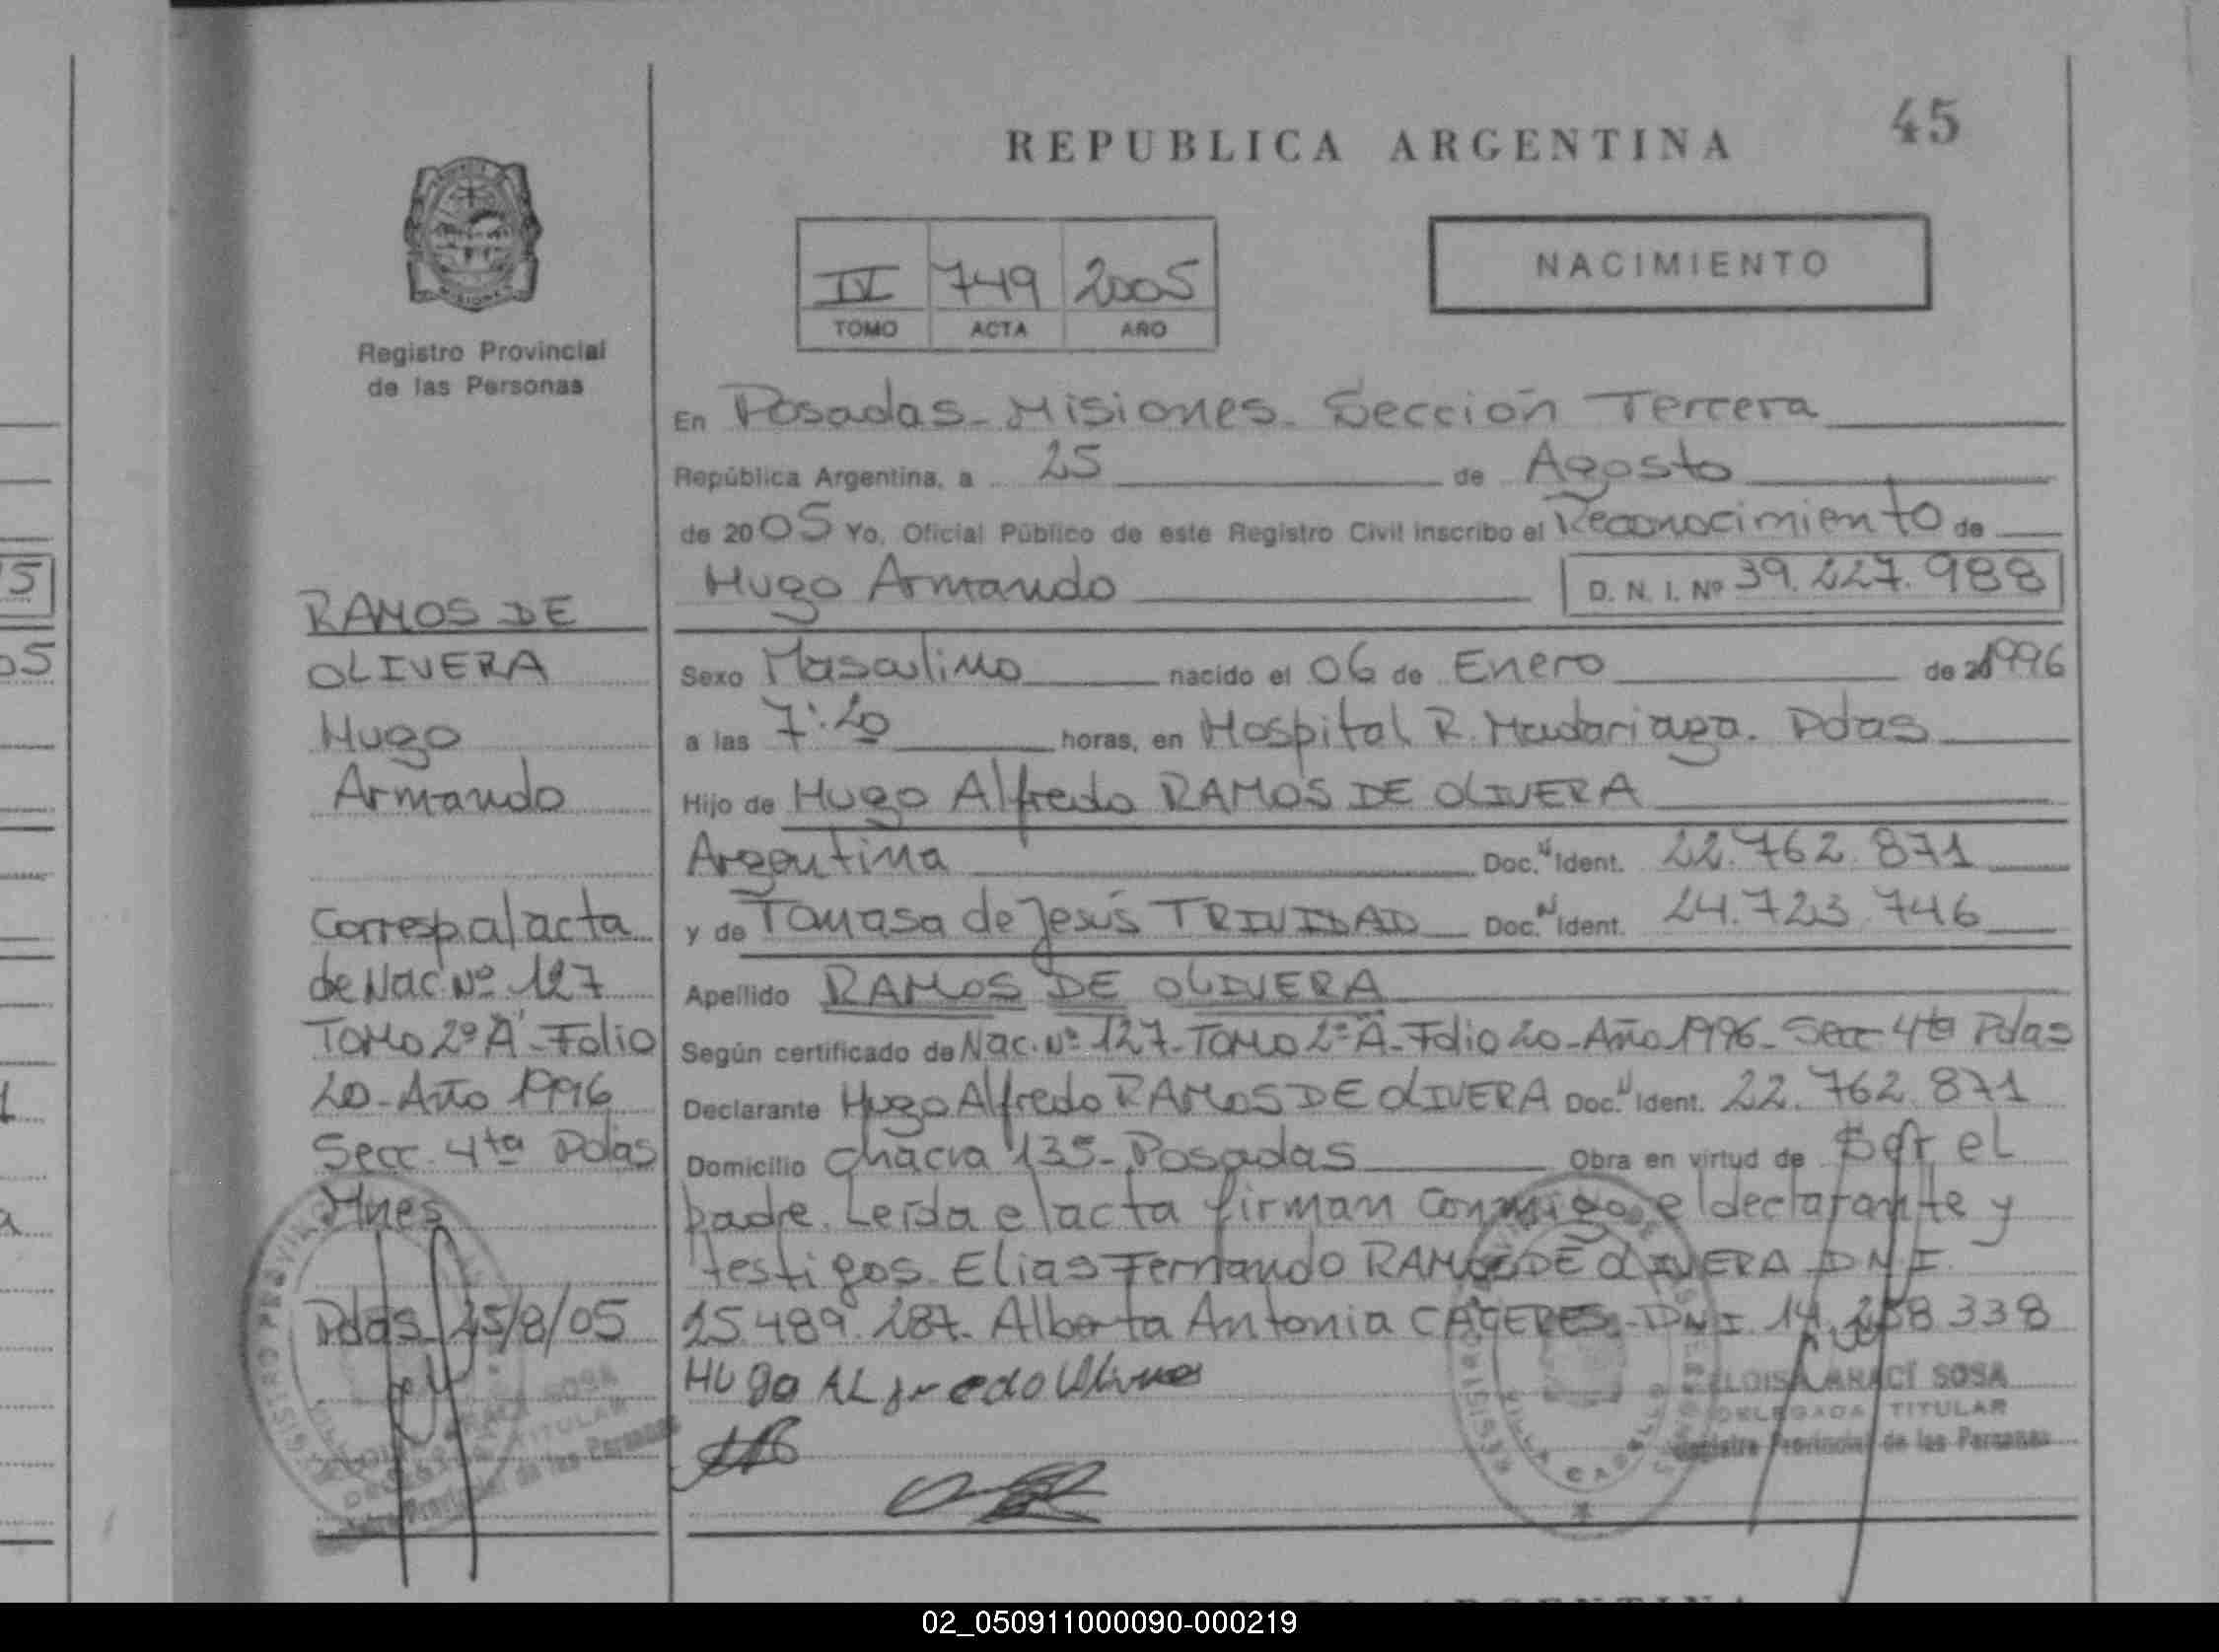 45
REPUBLICA ARGENTINA
NACIMIENTO
IV 749 2005
TOMO ACTA AÑO
MISIONES
Registro Provincial
de las Personas
En Posadas - Misiones - Sección Tercera
República Argentina, a 25 de Agosto
de 2005 Yo, Oficial Público de este Registro Civil inscribo el Reconocimiento de
Hugo Armando D. N. I. Nº 39.227.988
Sexo Masculino nacido el 06 de Enero de 1996
a las 7:20 horas, en Hospital R. Madariaga. Pdas
Hijo de Hugo Alfredo RAMOS DE OLIVERA
Argentina Doc. N Ident. 22.762.871
y de Tomasa de Jesús TRINIDAD Doc. N Ident. 24.723.746
Apellido RAMOS DE OLIVERA
Según certificado de Nac. Nº 127 - Tomo 2º A - Folio 20 - Año 1996 - Secc 4ta Pdas
Declarante Hugo Alfredo RAMOS DE OLIVERA Doc. N Ident. 22.762.871
Domicilio chacra 135 - Posadas Obra en virtud de Ser el
padre. Leída el acta firman conmigo el declarante y
testigos. Elias Fernando RAMOS DE OLIVERA D.N.I.
25.489.287. Alberta Antonia CACERES - DNI 14.258.338
HUgo ALfredo Olivera
ELOISA ARACI SOSA
DELEGADA TITULAR
Registro Provincial de las Personas
RAMOS DE
OLIVERA
Hugo
Armando
Corresp al acta
de Nac. Nº 127
Tomo 2º A - Folio
20 - Año 1996
Secc 4ta Pdas
Mnes
Pdas 25/8/05
REGISTRO PROVINCIAL
DELEGADA TITULAR
Registro Provincial de las Personas
02_050911000090-000219